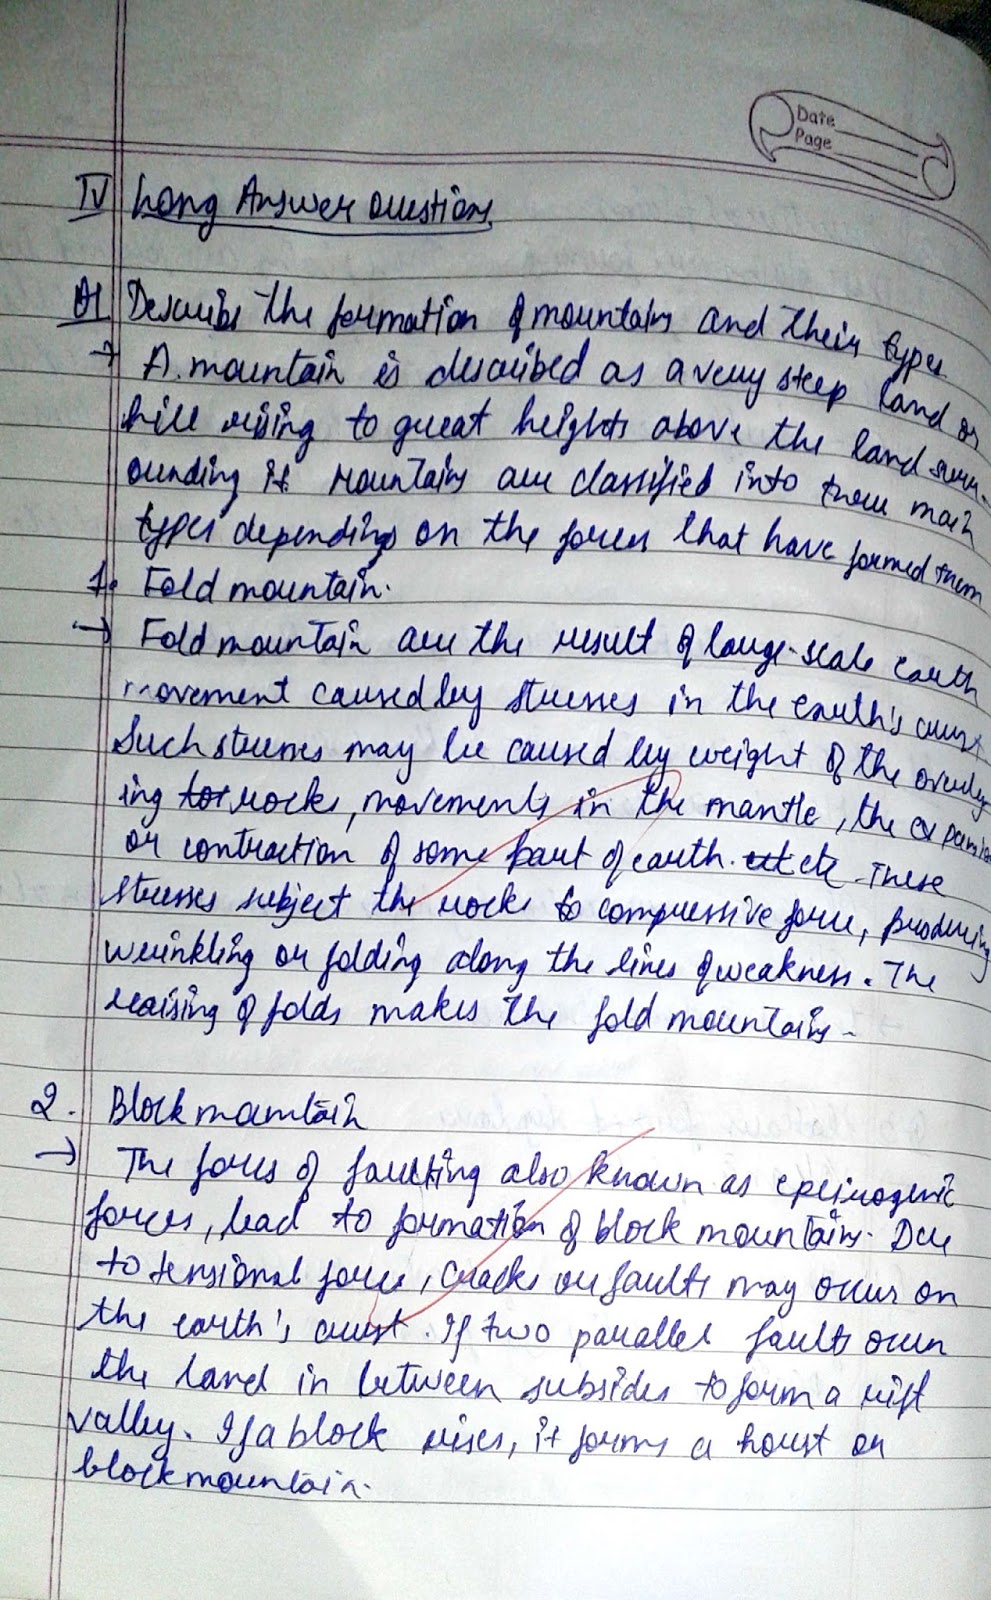 Date
Page
IV Long Answer Questions
Q1 Describe the formation of mountains and their types.
→ A mountain is described as a very steep land or
hill rising to great heights above the land surr-
ounding it. Mountains are classified into three main
types depending on the forces that have formed them
1. Fold mountain.
→ Fold mountain are the result of large-scale earth
movement caused by stresses in the earth's crust
Such stresses may be caused by weight of the overly
ing rocks, movements in the mantle, the expansion
or contraction of some part of earth. etc. These
stresses subject the rocks to compressive force, producing
wrinkling or folding along the lines of weakness. The
raising of folds makes the fold mountains.
2. Block mountain
→ The forces of faulting also known as epeirogenic
forces, lead to formation of block mountains. Due
to tensional force, cracks or faults may occur on
the earth's crust. If two parallel faults occur
the land in between subsides to form a rift
valley. If a block rises, it forms a horst or
block mountain.